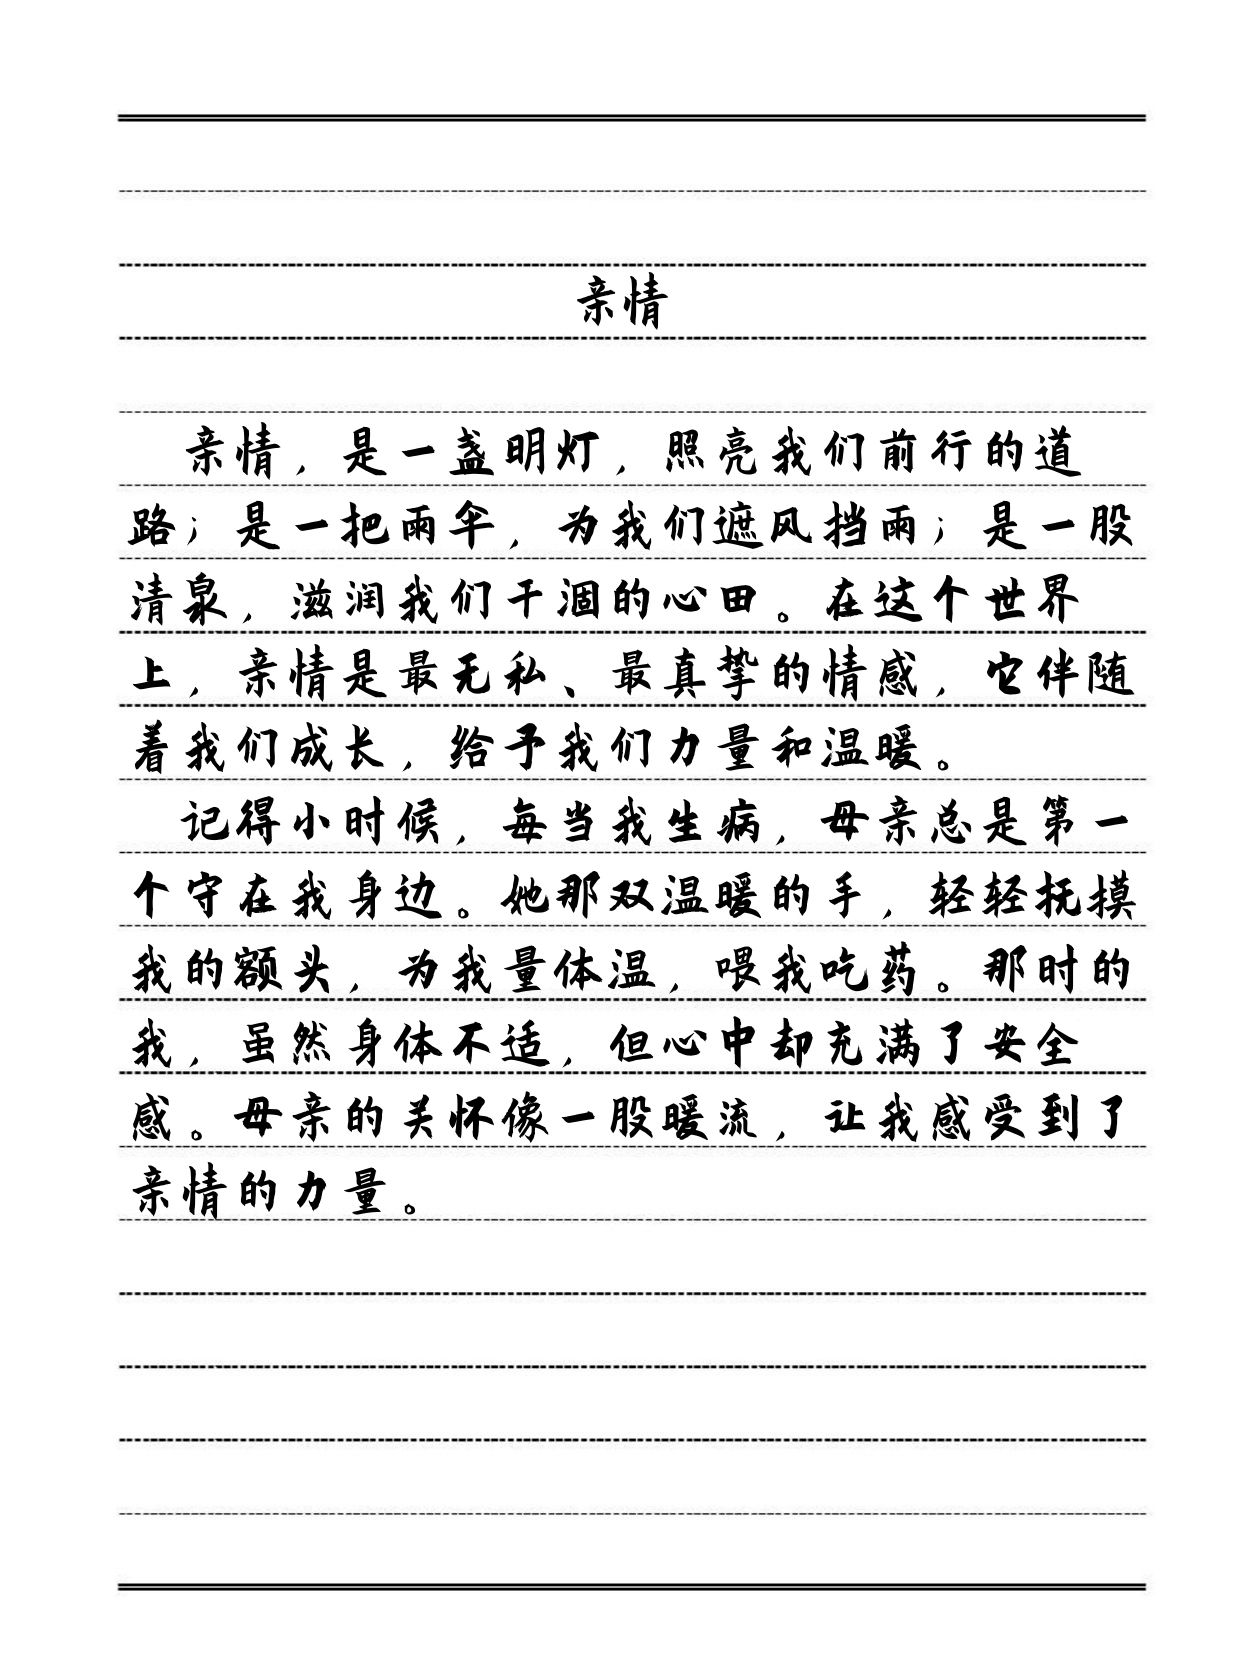 亲情
亲情，是一盏明灯，照亮我们前行的道
路；是一把雨伞，为我们遮风挡雨；是一股
清泉，滋润我们干涸的心田。在这个世界
上，亲情是最无私、最真挚的情感，它伴随
着我们成长，给予我们力量和温暖。
记得小时候，每当我生病，母亲总是第一
个守在我身边。她那双温暖的手，轻轻抚摸
我的额头，为我量体温，喂我吃药。那时的
我，虽然身体不适，但心中却充满了安全
感。母亲的关怀像一股暖流，让我感受到了
亲情的力量。